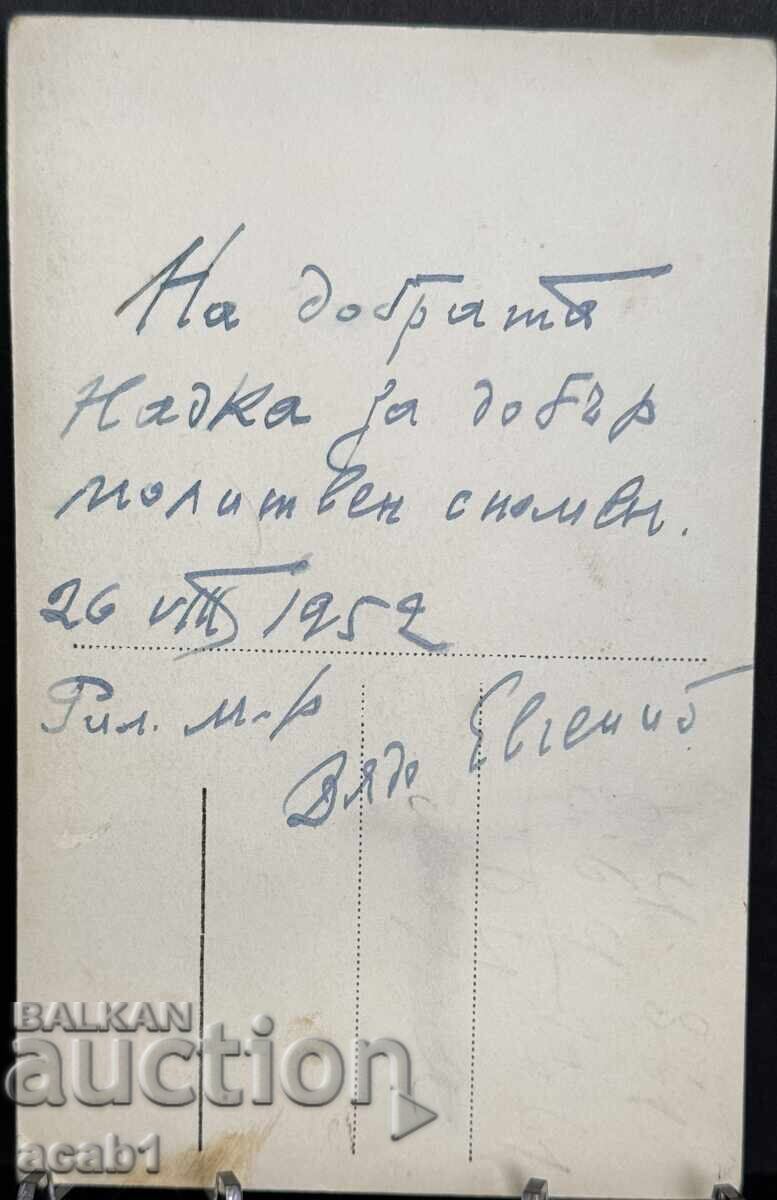 На добрата
Надка за добър
молитвен спомен.
26 VIII 1952
Рил. м-р
Дядо Евгений
BALKAN
auction
acab1